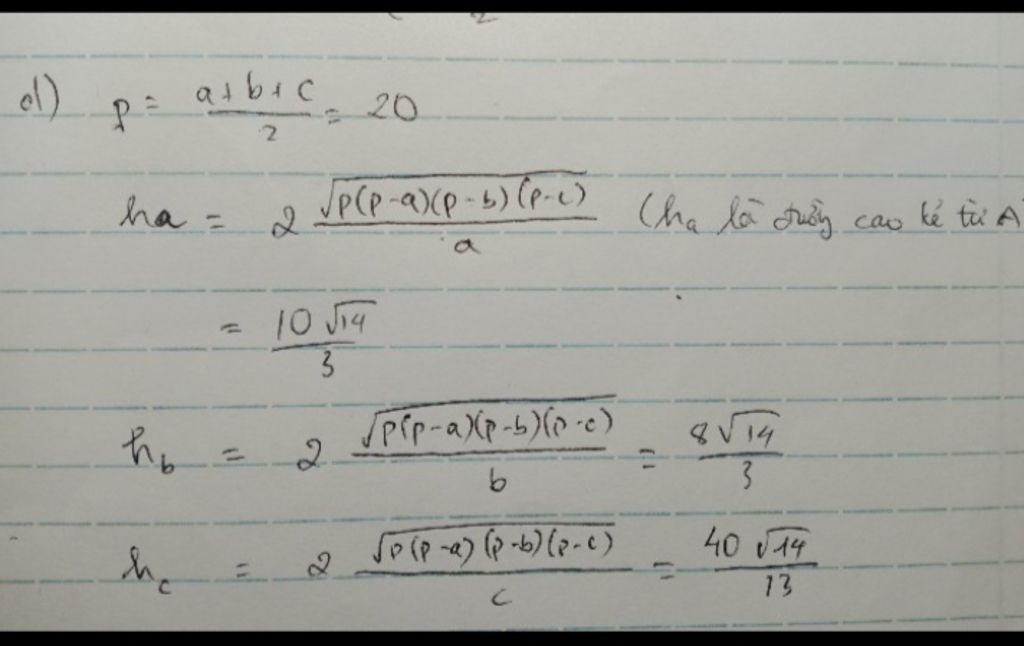 d) p = \frac{a+b+c}{2} = 20
ha = 2 \frac{\sqrt{p(p-a)(p-b)(p-c)}}{a} (ha là đường cao kẻ từ A
= \frac{10\sqrt{14}}{3}
h_b = 2 \frac{\sqrt{p(p-a)(p-b)(p-c)}}{b} = \frac{8\sqrt{14}}{3}
h_c = 2 \frac{\sqrt{p(p-a)(p-b)(p-c)}}{c} = \frac{40\sqrt{14}}{13}